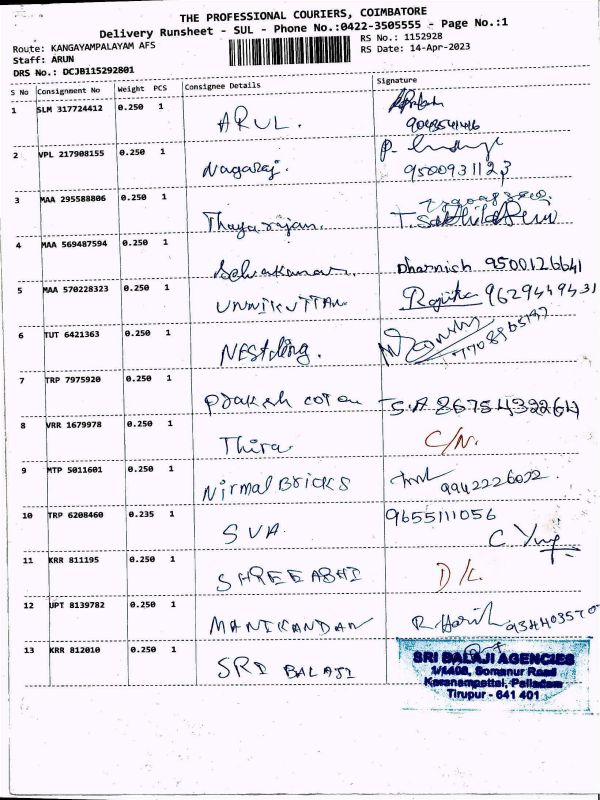 THE PROFESSIONAL COURIERS, COIMBATORE
Delivery Runsheet - SUL - Phone No.:0422-3505555 - Page No.:1
Route: KANGAYAMPALAYAM AFS
RS No.: 1152928
Staff: ARUN
RS Date: 14-Apr-2023
DRS No.: DCJB115292801
S No Consignment No Weight PCS Consignee Details Signature
1 SLM 317724412 0.250 1
ARUL.
2 VPL 217908155 0.250 1
Nagaraj. 9500931123
3 MAA 295588806 0.250 1
Thayarajan.
4 MAA 569487594 0.250 1
Selvakumar. Dharnish 9500126641
5 MAA 570228323 0.250 1
UNNIKUTTAN 9629449431
6 TUT 6421363 0.250 1
NEStling.
7 TRP 7975920 0.250 1
S.A 8675432264
8 VRR 1679978 0.250 1
Thira C/N.
9 MTP 5011601 0.250 1
Nirmal BRICKS 9942226022
10 TRP 6208460 0.235 1 9655111056
SVA
11 KRR 811195 0.250 1
SHREE ABHI D/L.
12 UPT 8139782 0.250 1
MANIKANDAN
13 KRR 812010 0.250 1
SRI BALAJI
SRI BALAJI AGENCIES
1/1408, Somanur Road
Karanampettai, Palladam
Tirupur - 641 401